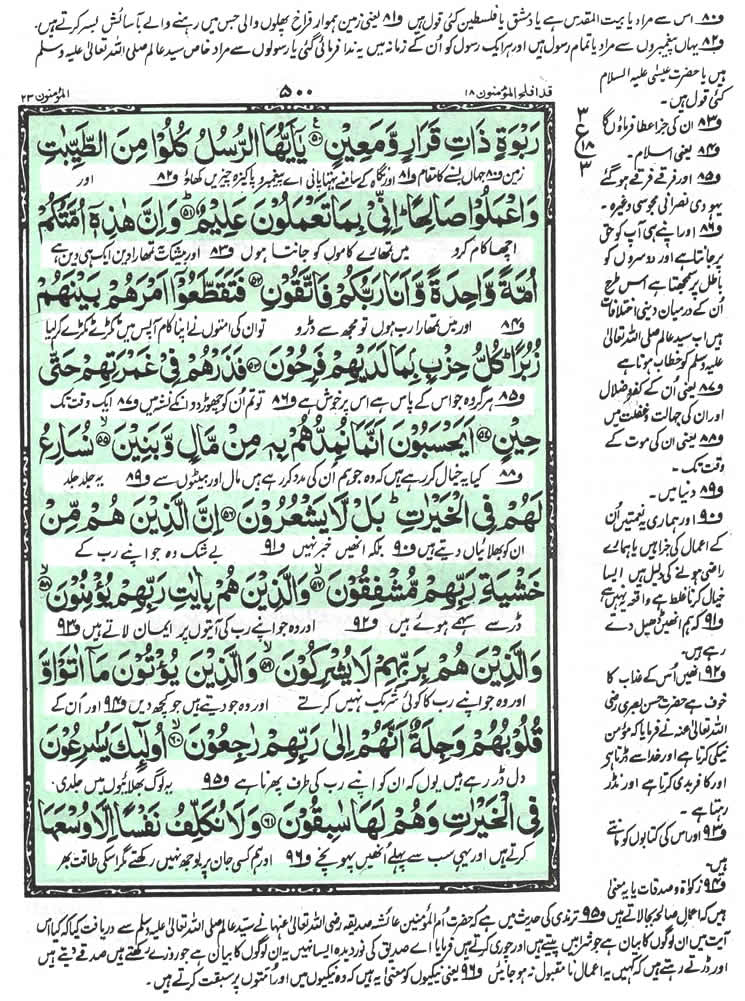 و۸۰ اس سے مراد یا بیت المقدس ہے یا دمشق یا فلسطین کئی قول ہیں و۸۱ یعنی زمین ہموار فراخ پھلوں والی جس میں رہنے والے بآسائش بسر کرتے ہیں۔
و۸۲ یہاں پیغمبروں سے مراد یا تمام رسول ہیں اور ہر ایک رسول کو اُن کے زمانہ میں یہ ندا فرمائی گئی یا رسولوں سے مراد خاص سید عالم صلی اللہ تعالیٰ علیہ وسلم
ہیں یا حضرت عیسیٰ علیہ السلام
کئی قول ہیں۔
و۸۳ ان کی جزا عطا فرماؤں گا
و۸۴ یعنی اسلام۔
و۸۵ اور فرقے فرقے ہوگئے
یہودی نصرانی مجوسی وغیرہ۔
و۸۶ اور اپنے ہی آپ کو حق
پر جانتا ہے اور دوسروں کو
باطل پر سمجھتا ہے اس طرح
اُن کے درمیان دینی اختلافات
ہیں اب سید عالم صلی اللہ تعالیٰ
علیہ وسلم کو خطاب ہوتا ہے
و۸۷ یعنی اُن کے کفر و ضلال
اور ان کی جہالت و غفلت میں
و۸۸ یعنی ان کی موت کے
وقت تک۔
و۸۹ دنیا میں۔
و۹۰ اور ہماری یہ نعمتیں اُن
کے اعمال کی جزا ہیں یا ہمارے
راضی ہونے کی دلیل ہیں ایسا
خیال کرنا غلط ہے واقعہ یہ نہیں ہے
و۹۱ کہ ہم انھیں ڈھیل دے
رہے ہیں۔
و۹۲ انھیں اُس کے عذاب کا
خوف ہے حضرت حسن بصری رضی
اللہ تعالیٰ عنہ نے فرمایا کہ مؤمن
نیکی کرتا ہے اور خدا سے ڈرتا ہے
اور کافر بدی کرتا ہے اور نڈر
رہتا ہے۔
و۹۳ اور اس کی کتابوں کو مانتے
ہیں۔
و۹۴ زکوٰۃ و صدقات یا یہ معنی
قد افلح المؤمنون ۱۸
۵۰۰
المؤمنون ۲۳
۳
ع
۱۸
۳
رَبْوَةٍ ذَاتِ قَرَارٍ وَّمَعِيْنٍ ۝۵۰ يٰٓاَيُّهَا الرُّسُلُ كُلُوْا مِنَ الطَّيِّبٰتِ
زمین و۸۰ جہاں بسنے کا مقام و۸۱ اور نگاہ کے سامنے بہتا پانی اے پیغمبرو پاکیزہ چیزیں کھاؤ و۸۲ اور
وَاعْمَلُوْا صَالِحًا ؕ اِنِّيْ بِمَا تَعْمَلُوْنَ عَلِيْمٌ ۝۵۱ وَاِنَّ هٰذِهٖٓ اُمَّتُكُمْ
اچھا کام کرو میں تمھارے کاموں کو جانتا ہوں و۸۳ اور بیشک یہ تمھارا دین ایک ہی دین ہے
اُمَّةً وَّاحِدَةً وَّاَنَا رَبُّكُمْ فَاتَّقُوْنِ ۝۵۲ فَتَقَطَّعُوْٓا اَمْرَهُمْ بَيْنَهُمْ
و۸۴ اور میں تمھارا رب ہوں تو مجھ سے ڈرو تو ان کی امتوں نے اپنا کام آپس میں ٹکڑے ٹکڑے کرلیا
زُبُرًا ؕ كُلُّ حِزْبٍۭ بِمَا لَدَيْهِمْ فَرِحُوْنَ ۝۵۳ فَذَرْهُمْ فِيْ غَمْرَتِهِمْ حَتّٰى
و۸۵ ہر گروہ جو اس کے پاس ہے اس پر خوش ہے و۸۶ تو تم اُن کو چھوڑ دو انکے نشہ میں و۸۷ ایک وقت تک
حِيْنٍ ۝۵۴ اَيَحْسَبُوْنَ اَنَّمَا نُمِدُّهُمْ بِهٖ مِنْ مَّالٍ وَّبَنِيْنَ ۝۵۵ نُسَارِعُ
و۸۸ کیا یہ خیال کر رہے ہیں کہ وہ جو ہم اُن کی مدد کر رہے ہیں مال اور بیٹوں سے و۸۹ یہ جلد جلد
لَهُمْ فِي الْخَيْرٰتِ ؕ بَلْ لَّا يَشْعُرُوْنَ ۝۵۶ اِنَّ الَّذِيْنَ هُمْ مِّنْ
ان کو بھلائیاں دیتے ہیں و۹۰ بلکہ انھیں خبر نہیں و۹۱ بے شک وہ جو اپنے رب کے
خَشْيَةِ رَبِّهِمْ مُّشْفِقُوْنَ ۝۵۷ وَالَّذِيْنَ هُمْ بِاٰيٰتِ رَبِّهِمْ يُؤْمِنُوْنَ ۝۵۸
ڈر سے سہمے ہوئے ہیں و۹۲ اور وہ جو اپنے رب کی آیتوں پر ایمان لاتے ہیں و۹۳
وَالَّذِيْنَ هُمْ بِرَبِّهِمْ لَا يُشْرِكُوْنَ ۝۵۹ وَالَّذِيْنَ يُؤْتُوْنَ مَآ اٰتَوْا وَّ
اور وہ جو اپنے رب کا کوئی شریک نہیں کرتے اور وہ جو دیتے ہیں جو کچھ دیں و۹۴ اور اُن کے
قُلُوْبُهُمْ وَجِلَةٌ اَنَّهُمْ اِلٰى رَبِّهِمْ رٰجِعُوْنَ ۝۶۰ اُولٰٓئِكَ يُسٰرِعُوْنَ
دل ڈر رہے ہیں یوں کہ ان کو اپنے رب کی طرف پھرنا ہے و۹۵ یہ لوگ بھلائیوں میں جلدی
فِي الْخَيْرٰتِ وَهُمْ لَهَا سٰبِقُوْنَ ۝۶۱ وَلَا نُكَلِّفُ نَفْسًا اِلَّا وُسْعَهَا
کرتے ہیں اور یہی سب سے پہلے انھیں پہونچے و۹۶ اور ہم کسی جان پر بوجھ نہیں رکھتے مگر اسکی طاقت بھر
ہیں کہ اعمال صالحہ بجالاتے ہیں و۹۵ ترمذی کی حدیث میں ہے کہ حضرت اُم المؤمنین عائشہ صدیقہ رضی اللہ تعالیٰ عنہا نے سید عالم صلی اللہ تعالیٰ علیہ وسلم سے دریافت کیا کہ کیا اس
آیت میں ان لوگوں کا بیان ہے جو شرابیں پیتے ہیں اور چوری کرتے ہیں فرمایا اے صدیق کی نور دیدہ ایسا نہیں یہ اُن لوگوں کا بیان ہے جو روزے رکھتے ہیں صدقے دیتے ہیں
اور ڈرتے رہتے ہیں کہ کہیں یہ اعمال نا مقبول نہ ہو جائیں و۹۶ یعنی نیکیوں کو معنی یہ ہیں کہ وہ نیکیوں میں اور اُمتوں پر سبقت کرتے ہیں۔